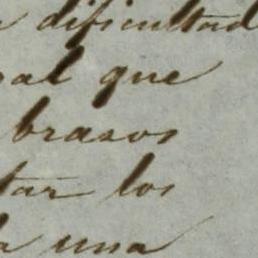 dificultad
que
brazos
tar los
una